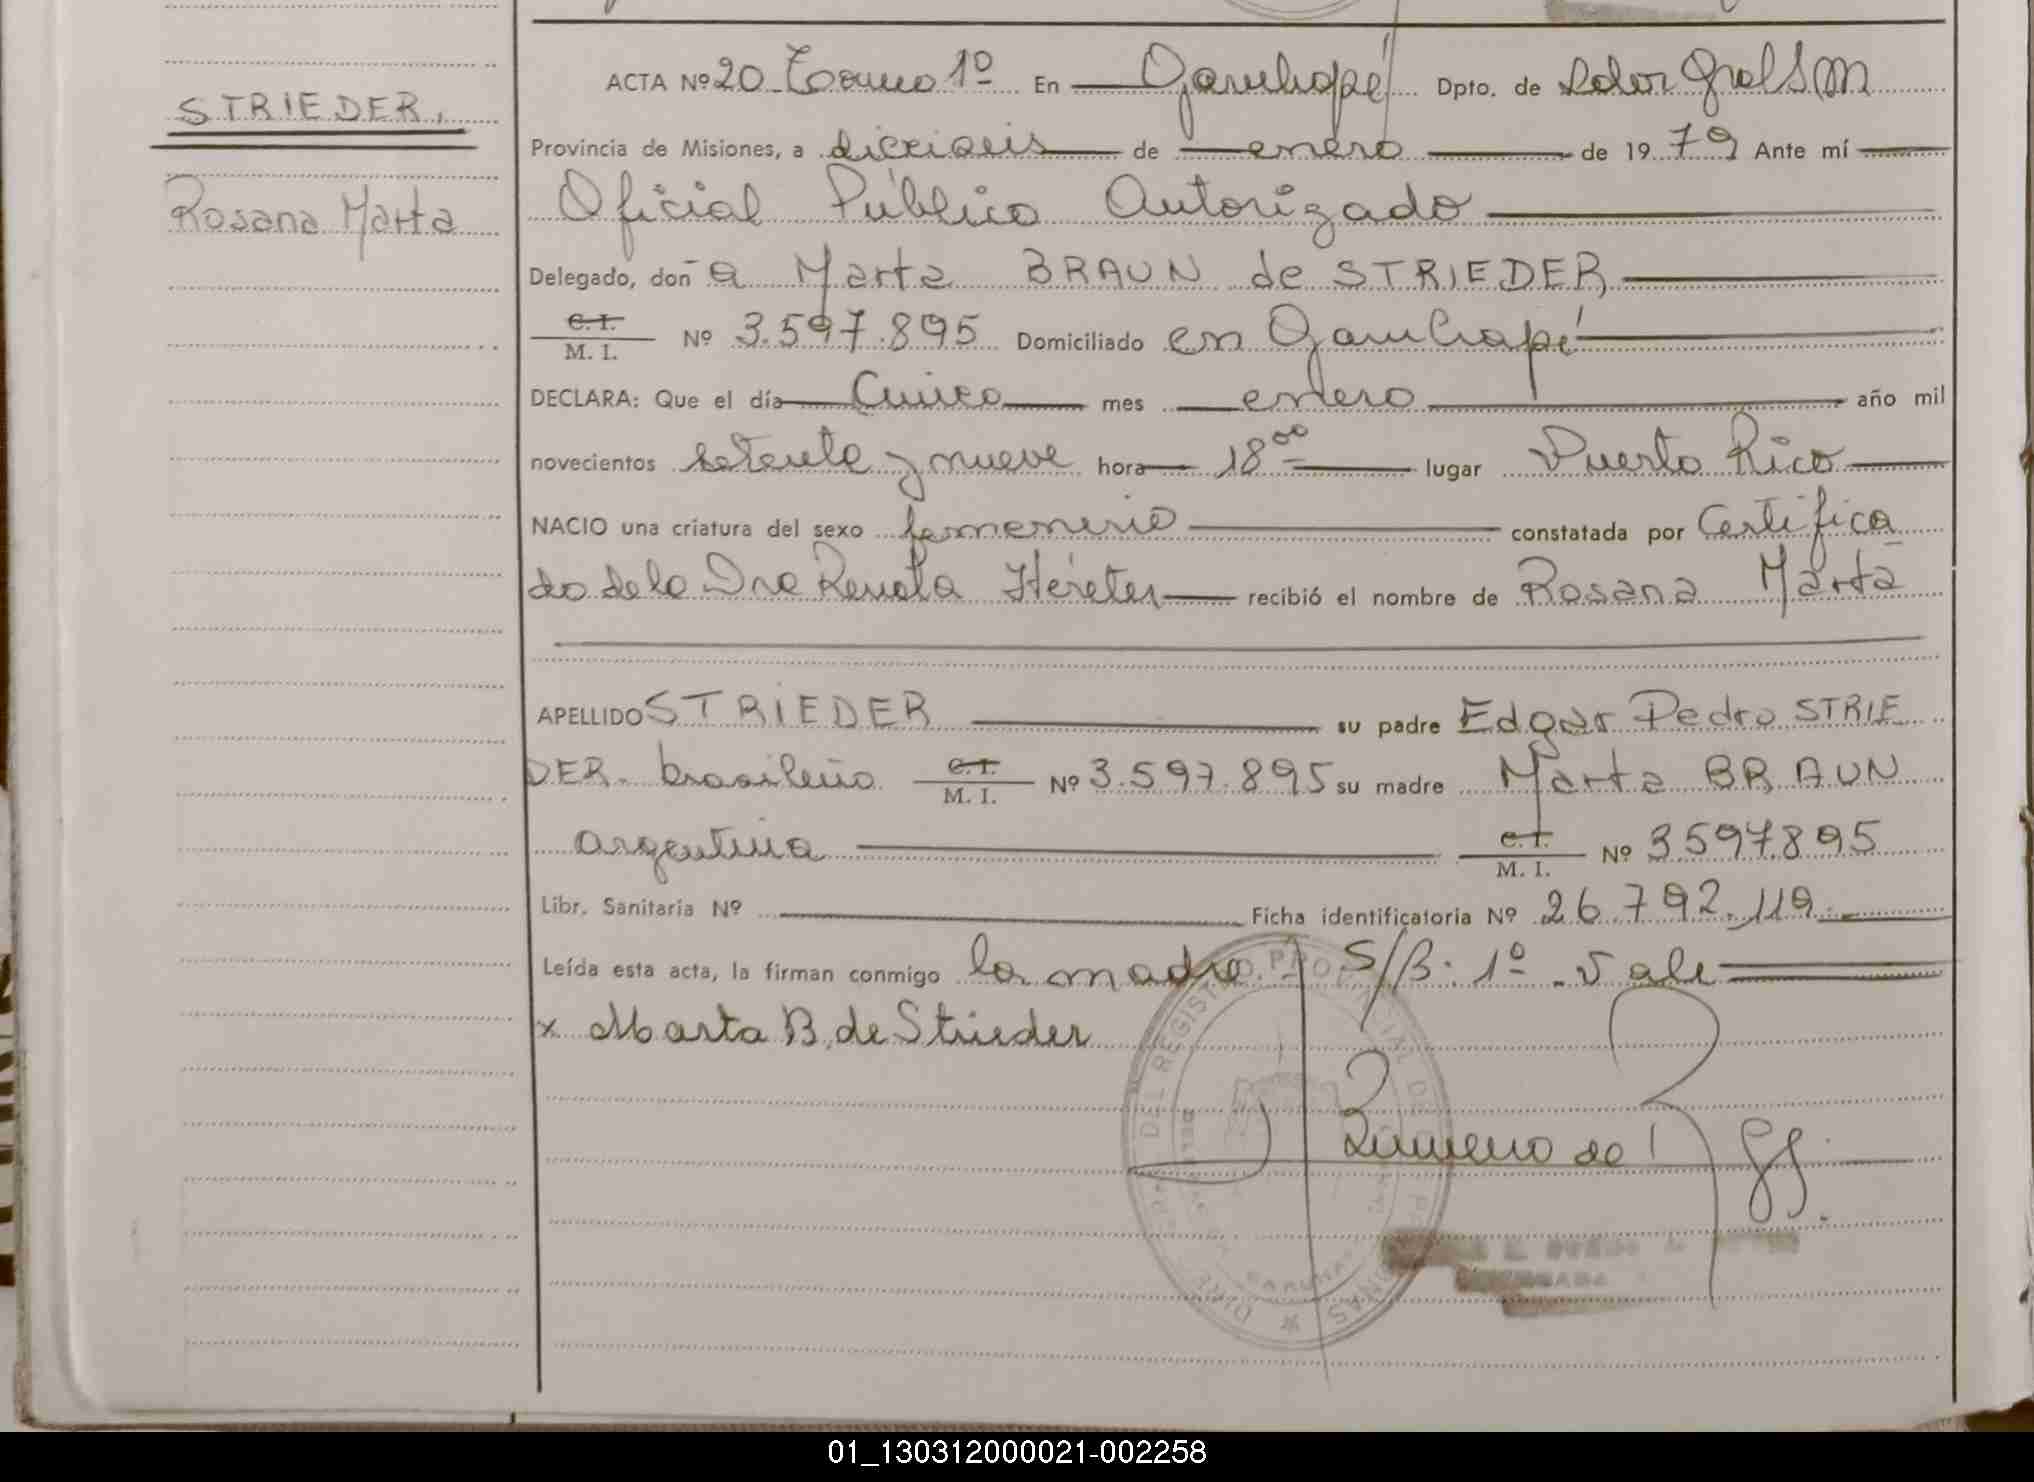 STRIEDER,
Rosana Marta
ACTA Nº 20 Tomo 1º En Garuhapé Dpto. de Ldor Gral S M
Provincia de Misiones, a dieciseis de enero de 1979 Ante mí
Oficial Público Autorizado
Delegado, don a Marta BRAUN de STRIEDER
C.I. M. I. Nº 3.597.895 Domiciliado en Garuhapé
DECLARA: Que el día Cinco mes enero año mil
novecientos setenta y nueve hora 18 00 lugar Puerto Rico
NACIO una criatura del sexo femenino constatada por Certifica
do de la Dra Renata Héreter recibió el nombre de Rosana Marta
APELLIDO STRIEDER su padre Edgar Pedro STRIE
DER. brasileño C.I. M. I. Nº 3.597.895 su madre Marta BRAUN
argentina C.I. M. I. Nº 3597.895
Libr. Sanitaria Nº Ficha identificatoria Nº 26.792.119.
Leída esta acta, la firman conmigo la madre. S/B. 1º. Vale
x Marta B. de Strieder
DEL REGISTRO PROVINCIAL DE
01_130312000021-002258